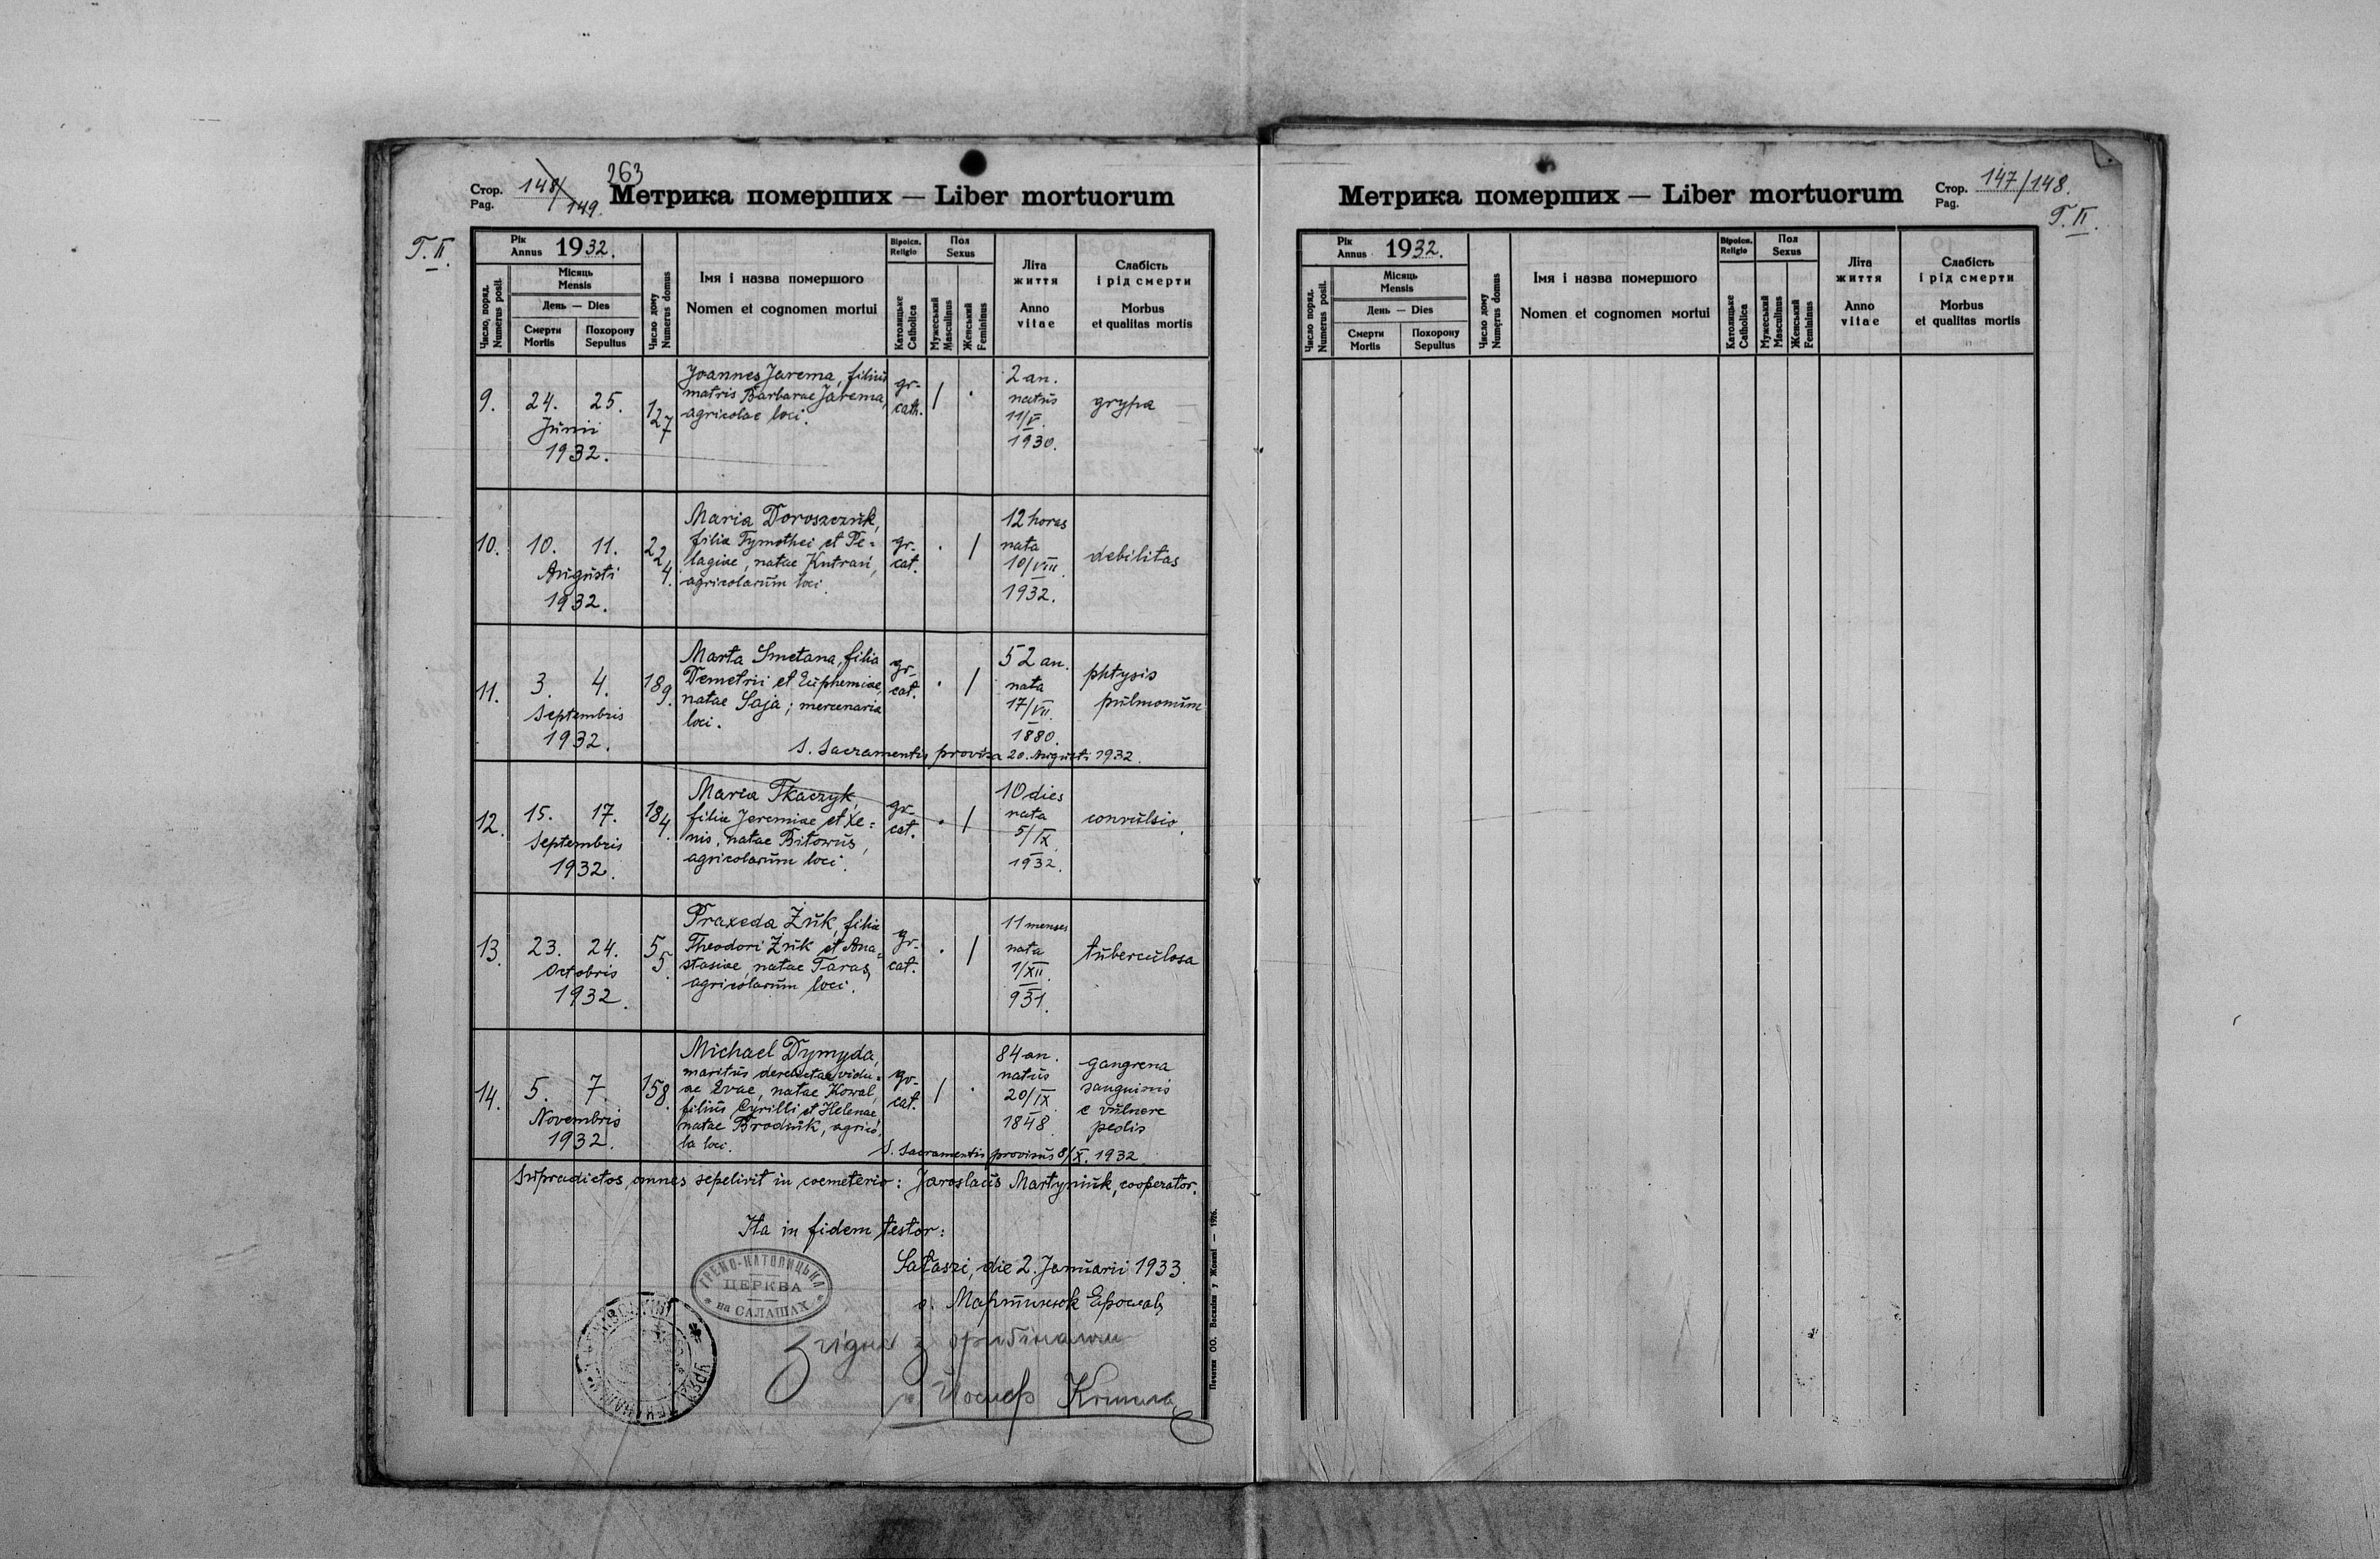 263
Стор. 148/
Pag. 149.
Метрика померших — Liber mortuorum
Т. II.
Рік
Annus 1932.
Число, поряд.
Numerus posit.
Місяць
Mensis
День — Dies
Смерти
Mortis
Похорону
Sepultus
Число дому
Numerus domus
Імя і назва помершого
Nomen et cognomen mortui
Віроісп.
Religio
Католицьке
Catholica
Пол
Sexus
Мужеський
Masculinus
Женський
Femininus
Літа
життя
Anno
vitae
Слабість
і рід смерти
Morbus
et qualitas mortis
9.
24. 25.
Junii
1932.
127
Joannes Jarema, filius
matris Barbarae Jarema,
agricolae loci.
gr-
cath.
2 an.
natus
11/V.
1930.
grypa
10.
10. 11.
Augusti
1932.
224.
Maria Doroszczuk,
filia Tymothei et Pe=
lagiae, natae Kutrań,
agricolarum loci.
gr-
cat.
12 horas
nata
10/VIII.
1932.
debilitas
11.
3. 4.
Septembris
1932.
189.
Marta Smetana, filia
Demetrii et Euphemiae,
natae Saja; mercenaria
loci.
gr-
cat.
52 an.
nata
17/VII.
1880.
phtysis
pulmonum
S. Sacramentis provisa 20. Augusti 1932.
12.
15. 17.
Septembris
1932.
184.
Maria Tkaczyk,
filia Jeremiae et Xe=
nis, natae Bitowus,
agricolarum loci.
gr-
cat.
10 dies
nata
5/IX.
1932.
convulsio.
13.
23. 24.
Octobris
1932.
55.
Praxeda Żuk, filia
Theodori Żuk et Ana=
stasiae, natae Taras,
agricolarum loci.
gr-
cat.
11 menses
nata
1/XII.
931.
tuberculosa
14.
5. 7.
Novembris
1932.
158.
Michael Dymyda,
maritus derelictae vidu=
ae Evae, natae Kowal,
filius Cyrilli et Helenae
natae Brodiuk, agrico=
la loci.
gr-
cat.
84 an.
natus
20/IX.
1848.
gangrena
sanguinis
e vulnere
pedis
S. Sacramentis provisus 8/X. 1932.
Supradictos omnes sepelivit in coemeterio: Jaroslaus Martyniuk, cooperator.
Ita in fidem testor:
Sałaszi, die 2. Januarii 1933.
о. Мартинюк Ярослав
ГРЕКО-КАТОЛИЦЬКА
ЦЕРКВА
на САЛАШАХ
Згідне з оригіналом
Йосиф
Печатня ОО. Василіян у Жовкві — 1926.
Метрика померших — Liber mortuorum
Стор. 147/148.
Pag.
Т. II.
Рік
Annus 1932.
Число поряд.
Numerus posit.
Місяць
Mensis
День — Dies
Смерти
Mortis
Похорону
Sepultus
Число дому
Numerus domus
Імя і назва помершого
Nomen et cognomen mortui
Віроісп.
Religio
Католицьке
Catholica
Пол
Sexus
Мужеський
Masculinus
Женський
Femininus
Літа
життя
Anno
vitae
Слабість
і рід смерти
Morbus
et qualitas mortis